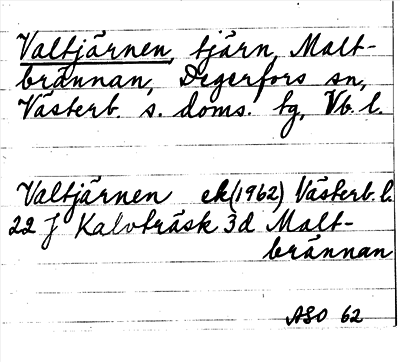 Valtjärnen, tjärn, Malt-
brännan, Degerfors sn,
Västerb. s. doms. tg, Vb. l.
Valtjärnen ek (1962) Västerb. l.
22 J Kalvträsk 3d Malt-
brännan
ASO 62